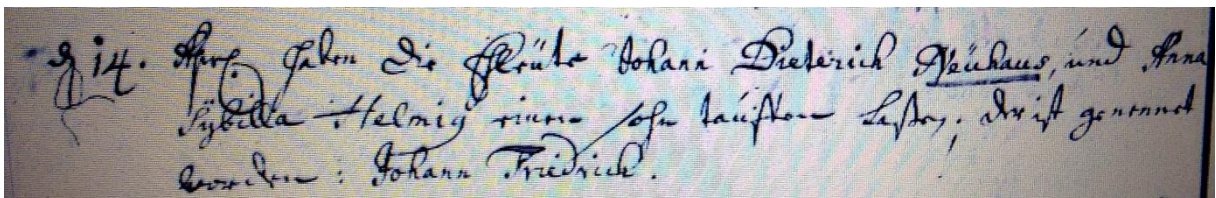 d 14. Apr. haben die Eheleüte Johann Dieterich Neühaus, und Anna
Sybilla Helmig einen sohn tauffen laßen, der ist genennet
worden: Johann Friedrich.